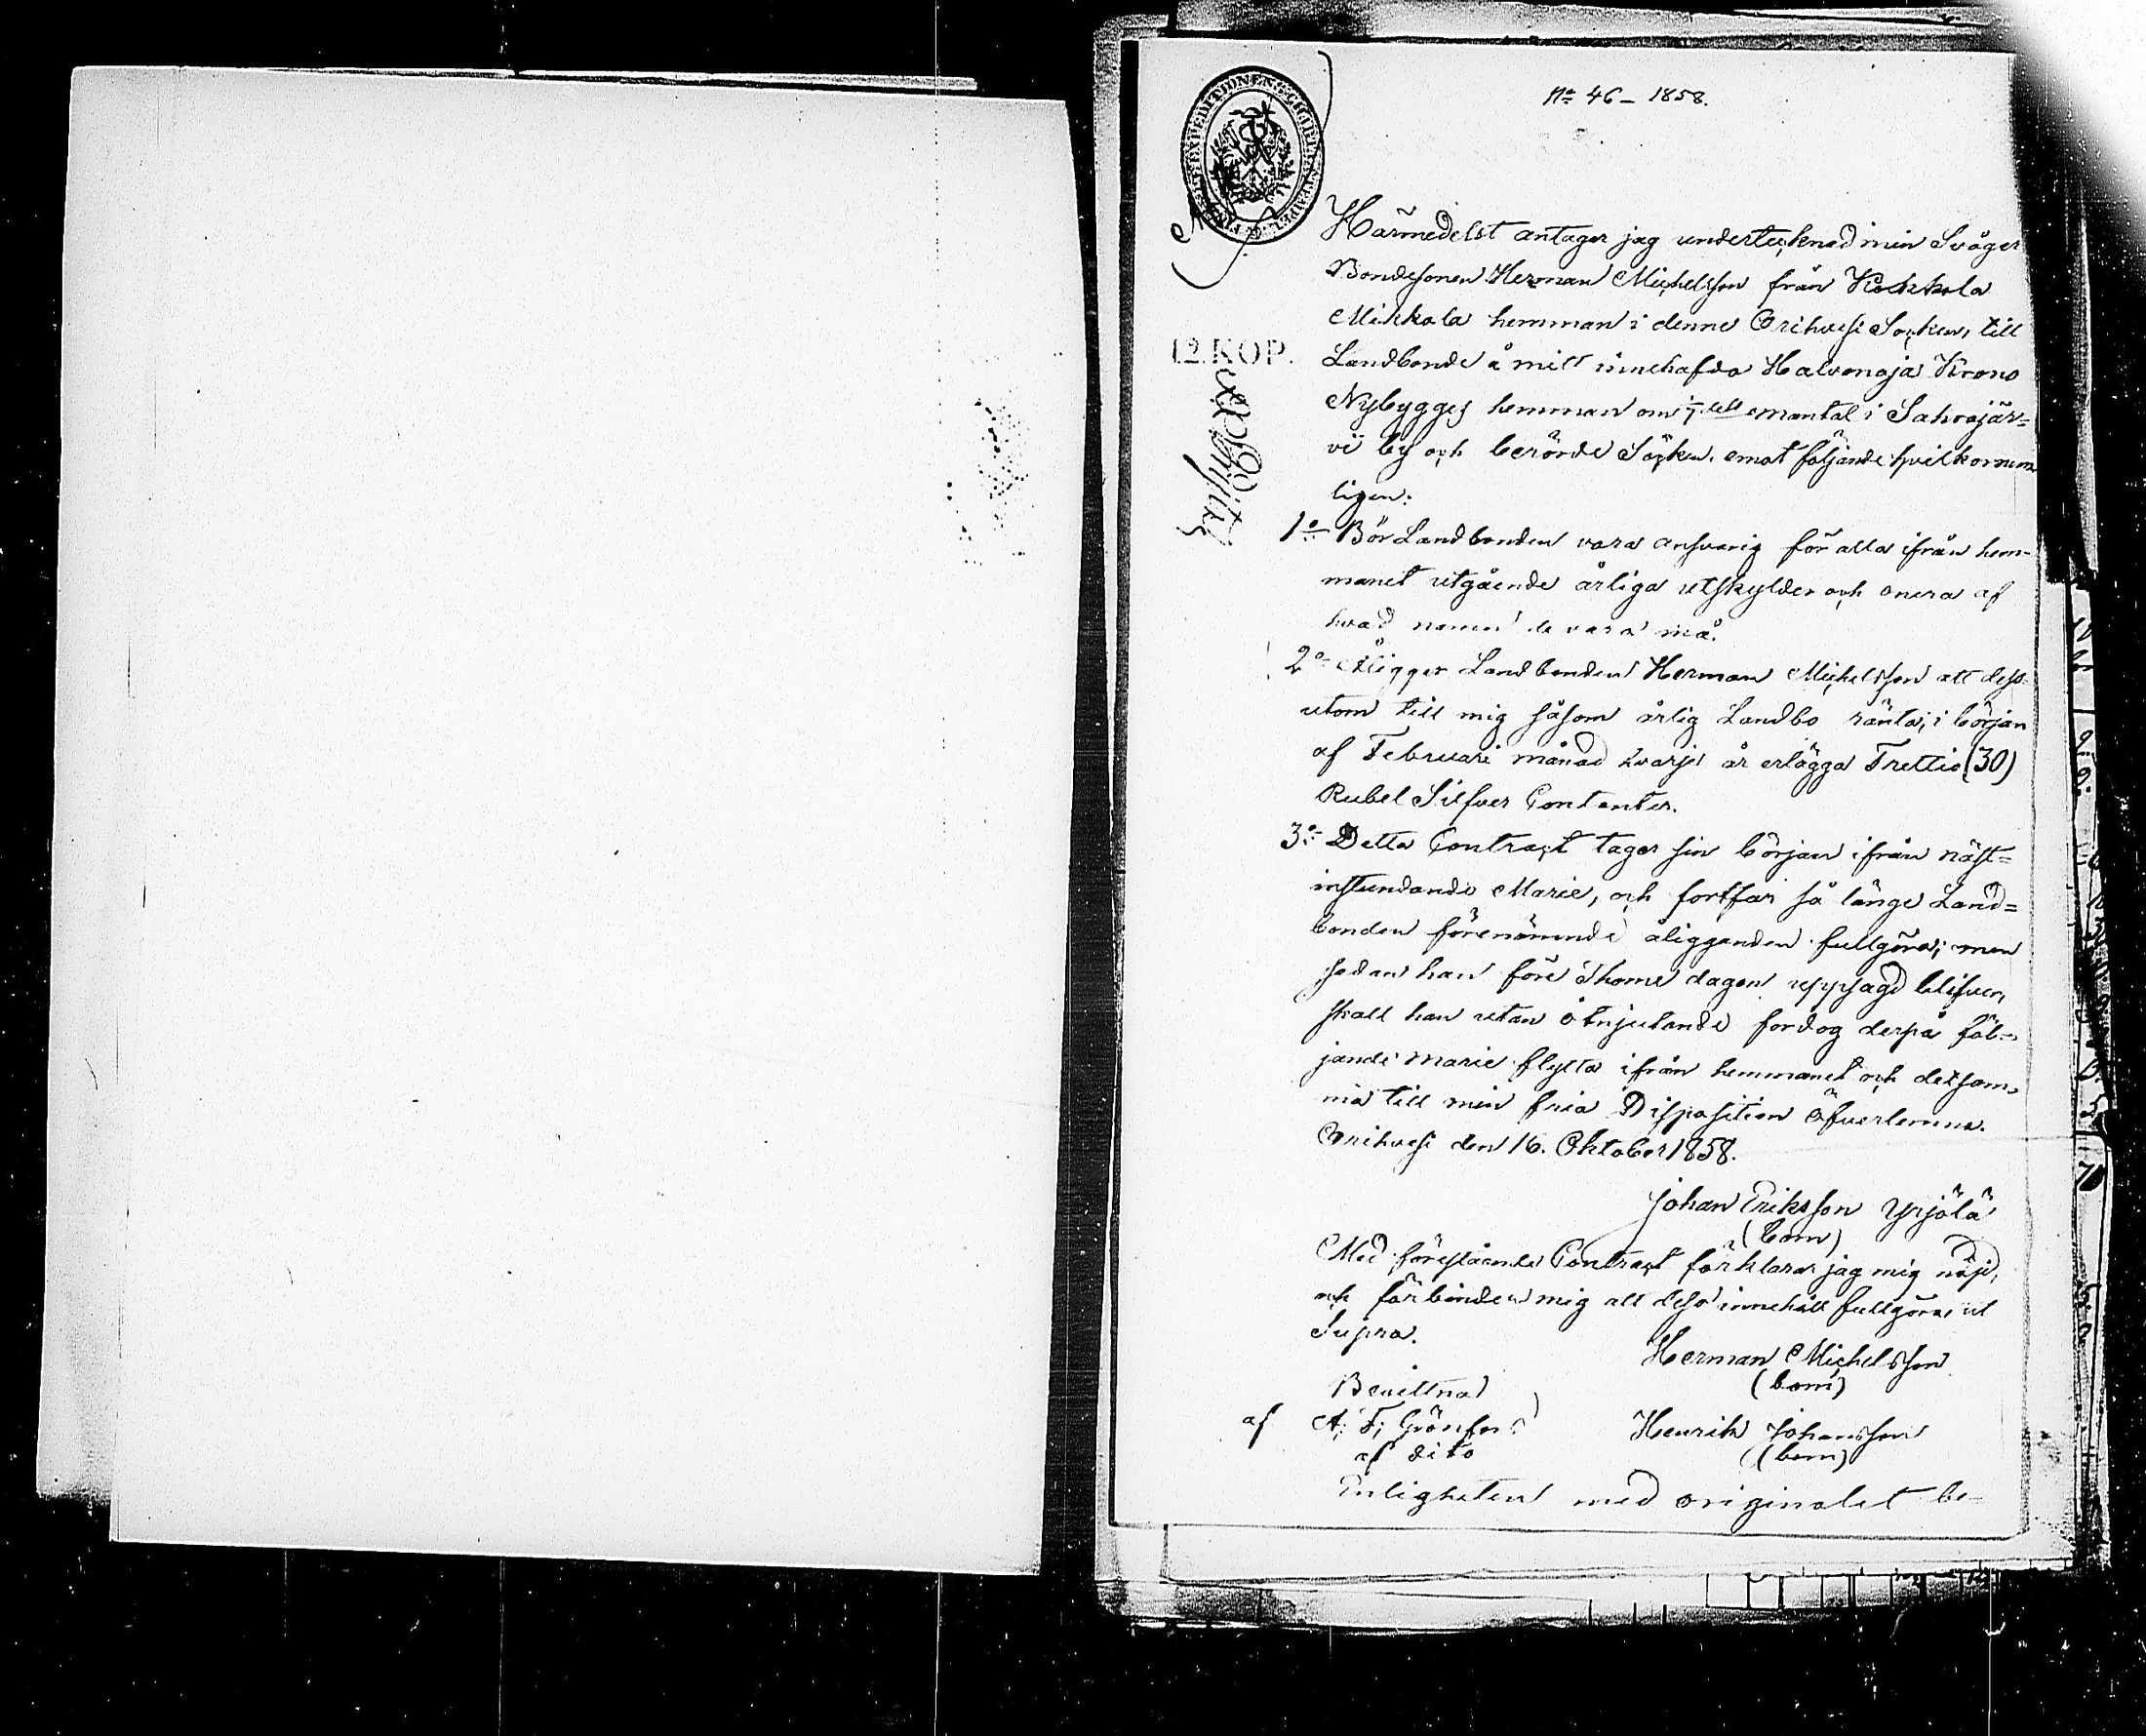 No 46 - 1858.
12. KOP.
Härmedelst antager jag undertecknad min Svåger
Bondesonen Herman Michelsson från Kockkola
Mikkola hemman i denne Orihvesi Socken, till
Landbonde å mitt innehafda Halvonoja Krono
Nybygges hemman om mantal i Sahrajär=
vi by och berörde Socken, emot följande hvilkor nem
ligen:
1o Bör Landbonden vara ansvarig för alla ifrån hem-
manet utgående årliga utskylder och onera af
hvad namn de vara må.
2o Åligger Landbonden Herman Michelsson att dess-
utom till mig såsom årlig Landbo ränta, i början
af Februari månad hvarje år erlägga Trettio (30)
Rubel Silfver Contanter.
3o Detta Contract tager sin början ifrån näst=
instundande Marie, och fortfar så länge Land=
bonden förenämnde åligganden fullgöra; men
sedan han före Thome dagen uppsagd blifver,
skall han utan åtnjutande fordag derpå föl=
jande Marie flytta ifrån hemmanet och detsam,
ma till min fria Disposition öfverlemna.
Orihvesi den 16. Oktober 1858.
Johan Eriksson Yrjölä
(bom)
Med förestående Contract förklarar jag mig nöjd,
och förbinder mig att dess innehåll fullgöra, ut
Supra.
Herman Michelsson
(bom)
Bevittna
af A. F. Grönfors Henrik Johansson
af dito (bom)
Enligheten med originalet be-